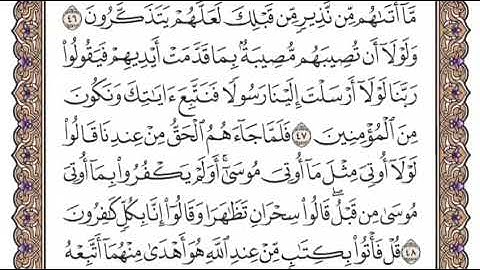 مَّآ أَتَىٰهُم مِّن نَّذِيرٍ مِّن قَبْلِكَ لَعَلَّهُمْ يَتَذَكَّرُونَ ٤٦
وَلَوْلَآ أَن تُصِيبَهُم مُّصِيبَةٌۢ بِمَا قَدَّمَتْ أَيْدِيهِمْ فَيَقُولُوا۟
رَبَّنَا لَوْلَآ أَرْسَلْتَ إِلَيْنَا رَسُولًا فَنَتَّبِعَ ءَايَٰتِكَ وَنَكُونَ
مِنَ ٱلْمُؤْمِنِينَ ٤٧ فَلَمَّا جَآءَهُمُ ٱلْحَقُّ مِنْ عِندِنَا قَالُوا۟
لَوْلَآ أُوتِىَ مِثْلَ مَآ أُوتِىَ مُوسَىٰٓ ۚ أَوَلَمْ يَكْفُرُوا۟ بِمَآ أُوتِىَ
مُوسَىٰ مِن قَبْلُ ۖ قَالُوا۟ سِحْرَانِ تَظَٰهَرَا وَقَالُوٓا۟ إِنَّا بِكُلٍّ كَٰفِرُونَ
٤٨ قُلْ فَأْتُوا۟ بِكِتَٰبٍ مِّنْ عِندِ ٱللَّهِ هُوَ أَهْدَىٰ مِنْهُمَآ أَتَّبِعْهُ